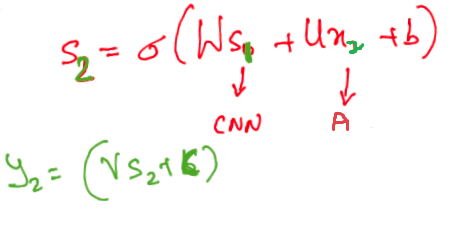 S₂ = σ(WS₁ + Ux₂ + b)
↓ ↓
CNN A
y₂ = (VS₂ + c)